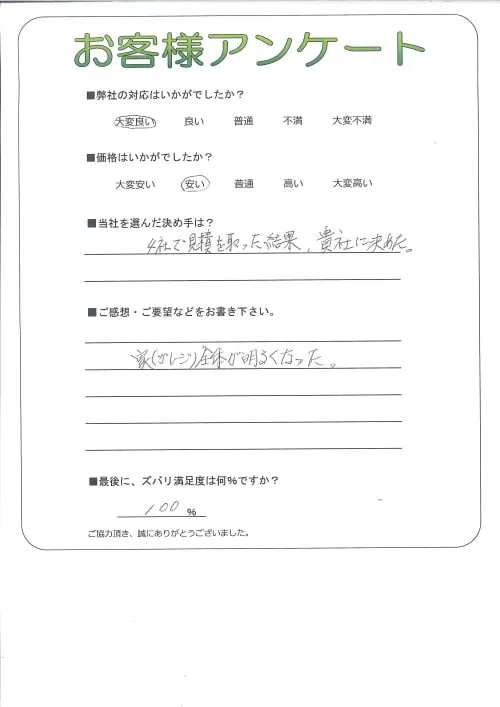 お客様アンケート
■弊社の対応はいかがでしたか？
大変良い 良い 普通 不満 大変不満
■価格はいかがでしたか？
大変安い 安い 普通 高い 大変高い
■当社を選んだ決め手は？
4社で見積を取った結果、貴社に決めた。
■ご感想・ご要望などをお書き下さい。
家(ガレージ)全体が明るくなった。
■最後に、ズバリ満足度は何%ですか？
100 %
ご協力頂き、誠にありがとうございました。